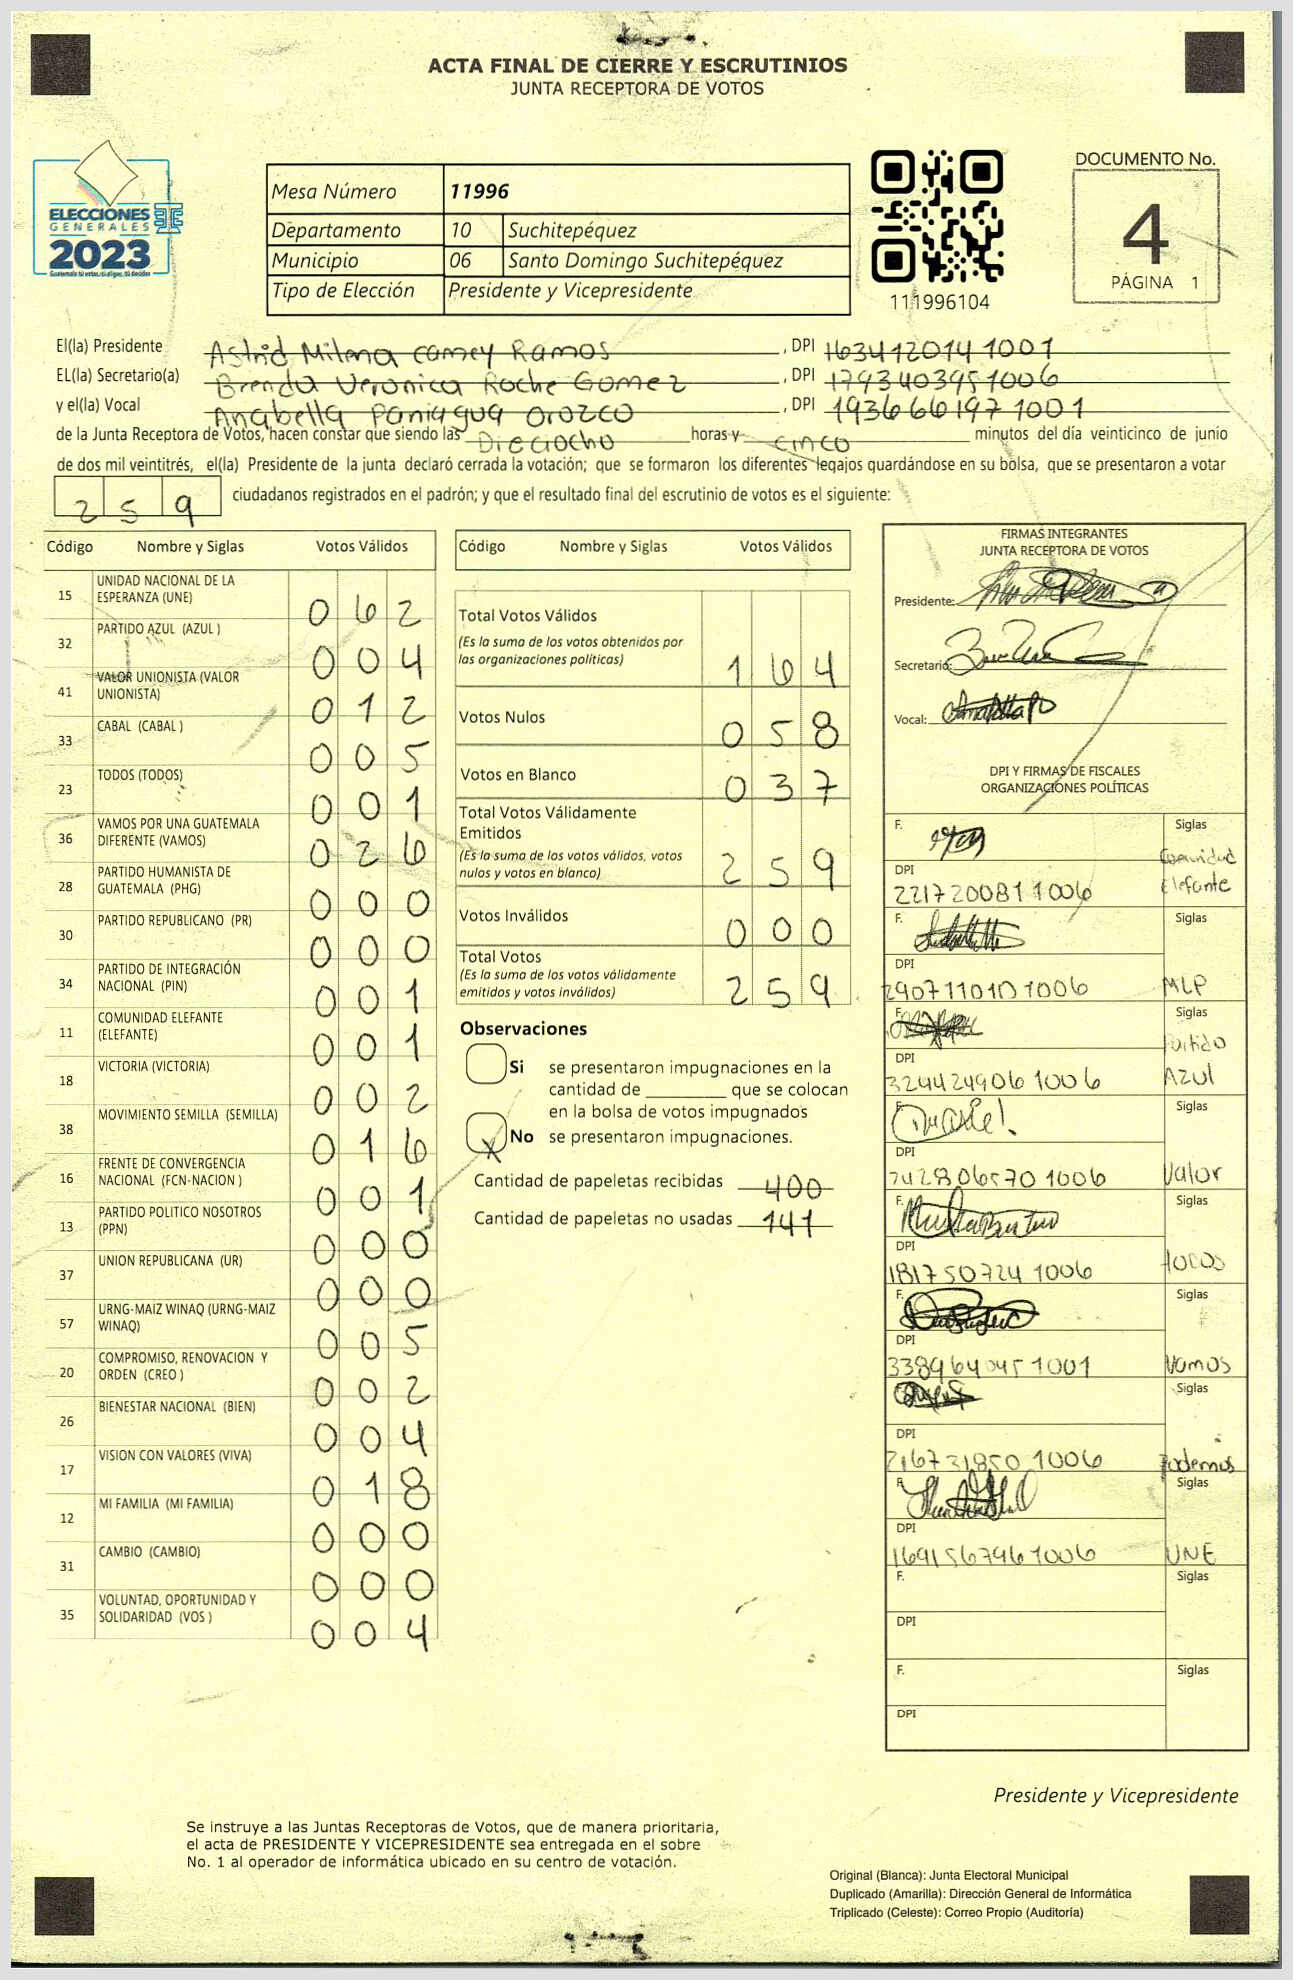 ACTA FINAL DE CIERRE Y ESCRUTINIOS
JUNTA RECEPTORA DE VOTOS
ELECCIONES
GENERALES
2023
Guatemala tú votas, tú eliges, tú decides
Mesa Número 11996
Departamento 10 Suchitepéquez
Municipio 06 Santo Domingo Suchitepéquez
Tipo de Elección Presidente y Vicepresidente
111996104
DOCUMENTO No.
4
PÁGINA 1
El(la) Presidente Astrid Milena Camey Ramos, DPI 163412014 1001
EL(la) Secretario(a) Brenda Veronica Roche Gomez, DPI 179340395 1006
y el(la) Vocal Anabella Paniagua Orozco, DPI 193666197 1001
de la Junta Receptora de Votos, hacen constar que siendo las Dieciocho horas y cinco minutos del día veinticinco de junio
de dos mil veintitrés, el(la) Presidente de la junta declaró cerrada la votación; que se formaron los diferentes legajos guardándose en su bolsa, que se presentaron a votar
259 ciudadanos registrados en el padrón; y que el resultado final del escrutinio de votos es el siguiente:
Código Nombre y Siglas Votos Válidos
15 UNIDAD NACIONAL DE LA ESPERANZA (UNE) 062
32 PARTIDO AZUL (AZUL ) 004
41 VALOR UNIONISTA (VALOR UNIONISTA) 012
33 CABAL (CABAL ) 005
23 TODOS (TODOS) 001
36 VAMOS POR UNA GUATEMALA DIFERENTE (VAMOS) 026
28 PARTIDO HUMANISTA DE GUATEMALA (PHG) 000
30 PARTIDO REPUBLICANO (PR) 000
34 PARTIDO DE INTEGRACIÓN NACIONAL (PIN) 001
11 COMUNIDAD ELEFANTE (ELEFANTE) 001
18 VICTORIA (VICTORIA) 002
38 MOVIMIENTO SEMILLA (SEMILLA) 016
16 FRENTE DE CONVERGENCIA NACIONAL (FCN-NACION ) 001
13 PARTIDO POLITICO NOSOTROS (PPN) 000
37 UNION REPUBLICANA (UR) 000
57 URNG-MAIZ WINAQ (URNG-MAIZ WINAQ) 005
20 COMPROMISO, RENOVACION Y ORDEN (CREO ) 002
26 BIENESTAR NACIONAL (BIEN) 004
17 VISION CON VALORES (VIVA) 018
12 MI FAMILIA (MI FAMILIA) 000
31 CAMBIO (CAMBIO) 000
35 VOLUNTAD, OPORTUNIDAD Y SOLIDARIDAD (VOS ) 004
Código Nombre y Siglas Votos Válidos
Total Votos Válidos
(Es la suma de los votos obtenidos por
las organizaciones políticas) 164
Votos Nulos 058
Votos en Blanco 037
Total Votos Válidamente
Emitidos
(Es la suma de los votos válidos, votos
nulos y votos en blanco) 259
Votos Inválidos 000
Total Votos
(Es la suma de los votos válidamente
emitidos y votos inválidos) 259
Observaciones
Si se presentaron impugnaciones en la
cantidad de ________ que se colocan
en la bolsa de votos impugnados
X No se presentaron impugnaciones.
Cantidad de papeletas recibidas 400
Cantidad de papeletas no usadas 141
FIRMAS INTEGRANTES
JUNTA RECEPTORA DE VOTOS
Presidente:
Secretario:
Vocal:
DPI Y FIRMAS DE FISCALES
ORGANIZACIONES POLÍTICAS
F. Siglas
Comunidad
Elefante
DPI
221720081 1006
F. Siglas
DPI
290711010 1006 MLP
F. Siglas
Partido
Azul
DPI
324424906 1006
F. Siglas
DPI
242806570 1006 Valor
F. Siglas
DPI
181750724 1006 Todos
F. Siglas
DPI
338964045 1001 Vamos
F. Siglas
DPI
216731850 1006 Podemos
F. Siglas
DPI
169156796 1006 UNE
F. Siglas
DPI
F. Siglas
DPI
Presidente y Vicepresidente
Se instruye a las Juntas Receptoras de Votos, que de manera prioritaria,
el acta de PRESIDENTE Y VICEPRESIDENTE sea entregada en el sobre
No. 1 al operador de informática ubicado en su centro de votación.
Original (Blanca): Junta Electoral Municipal
Duplicado (Amarilla): Dirección General de Informática
Triplicado (Celeste): Correo Propio (Auditoría)